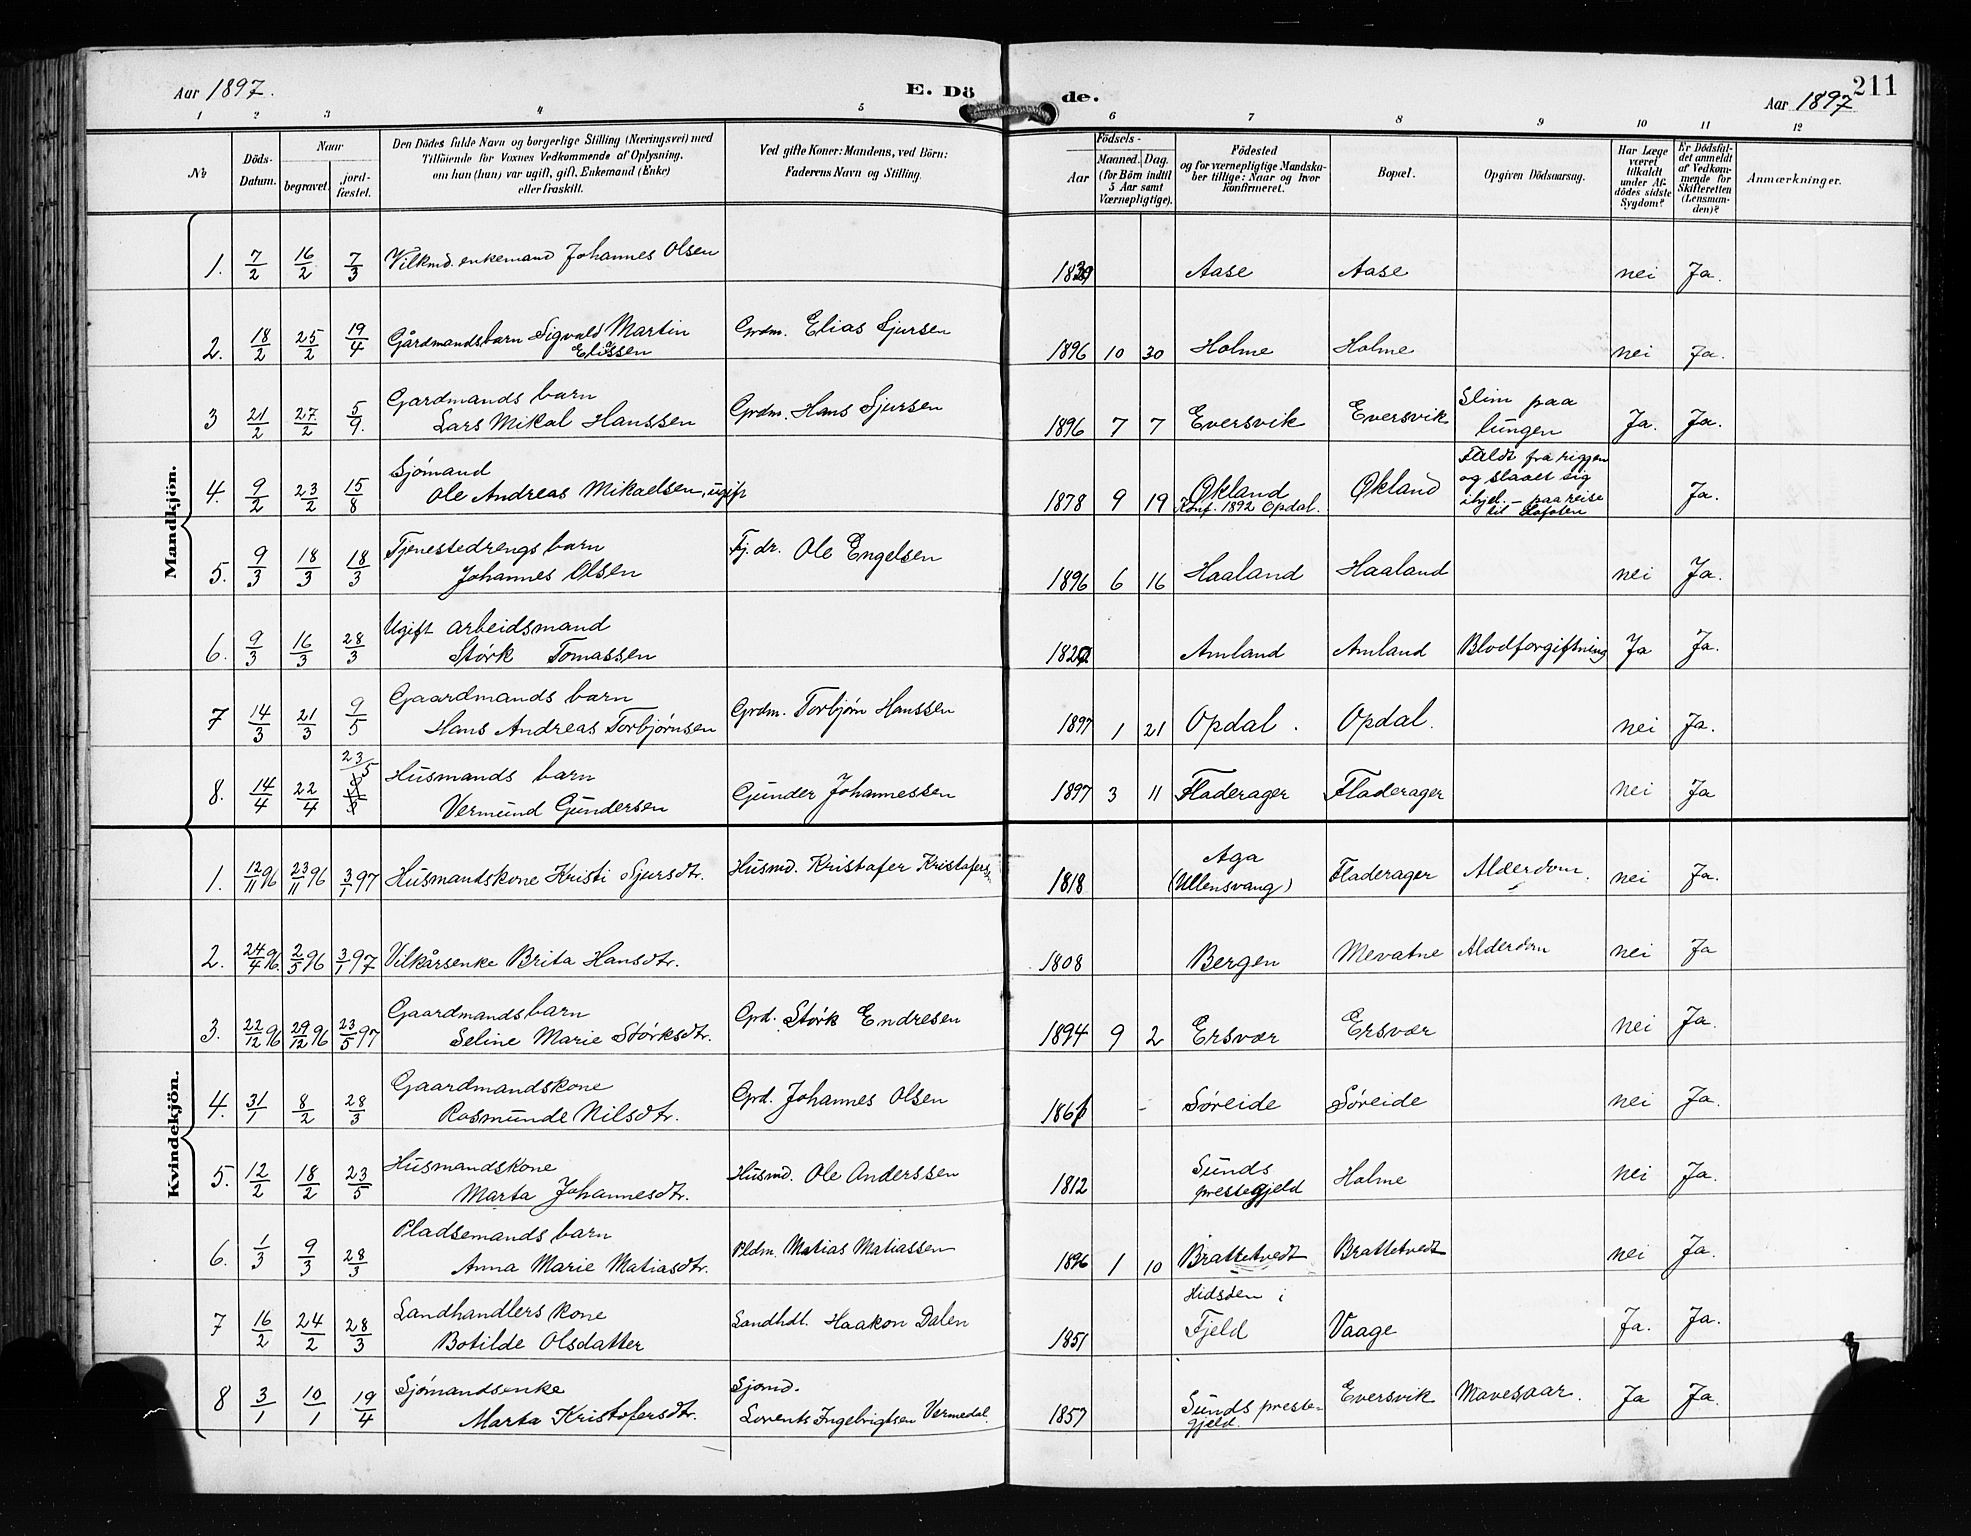 Aar 1897.
E. Dö de.
Aar 1897
211
1 2 3 4 5 6 7 8 9 10 11 12
№
Döds-Datum.
Naar
begravet.
jord-fæstet.
Den Dödes fulde Navn og borgerlige Stilling (Næringsvei) med
Tilföiende for Voxnes Vedkommende af Oplysning,
om han (hun) var ugift, gift, Enkemand (Enke)
eller fraskilt.
Ved gifte Koner: Mandens, ved Börn:
Faderens Navn og Stilling.
Födsels-
Aar
Maaned. Dag.
(for Börn indtil
5 Aar samt
Værnepligtige).
Födested
og for værnepligtige Mandska-
ber tillige: Naar og hvor
konfirmeret.
Bopæl.
Opgiven Dödsaarsag.
Har Læge
været
tilkaldt
under Af-
dödes sidste
Sygdom?
Er Dödsfal-
det anmeldt
af Vedkom-
mende for
Skifteretten
(Lensman-
den)?
Anmærkninger.
Mandkjön.
1. 7/2 16/2 7/3 Vilkmd. enkemand Johannes Olsen Aase Aase nei Ja.
2. 18/2 25/2 19/4 Gårdmandsbarn Sigvald Martin
Eliassen Grdm. Elias Sjursen 1896 10 30 Holme Holme nei Ja.
3 21/2 27/2 5/9. Gardmands barn
Lars Mikal Hanssen Grdm. Hans Sjursen 1896 7 7 Eversvik Eversvik Slim paa
lungen Ja. Ja.
4. 9/2 23/2 15/8 Sjømand
Ole Andreas Mikaelsen, ugift 1878 9 19 Økland
Konf. 1892 Opdal. Økland Faldt fra riggen
og slaaet sig
ihjel. – paa reise
til Lofoten Ja.
5. 9/3 18/3 18/3 Tjenestedrengs barn
Johannes Olsen Tj. dr. Ole Engelsen 1896 6 16 Haaland Haaland nei Ja.
6. 9/3 16/3 28/3 Ugift arbeidsmand
Størk Tomassen Amland Amland Blodforgiftning Ja Ja.
7 14/3 21/3 9/5 Gaardmands barn
Hans Andreas Torbjørnsen Grdm. Torbjørn Hanssen 1897 1 21 Opdal. Opdal. nei Ja.
8. 14/4 22/4 23/5 Husmands barn
Vermund Gundersen Gunder Johannessen 1897 3 11 Fladerager Fladerager nei Ja
Kvindekjön.
1. 12/11 96 23/11 96 3/1 97 Husmandskone Kristi Sjursdtr. Husmd. Kristafer Kristafers. 1818 Aga
(Ullensvang) Fladerager Alderdom. nei Ja.
2. 24/4 96. 2/5 96 3/1 97 Vilkårsenke Brita Hansdtr. 1808 Bergen Mevatne Alderdom nei Ja
3. 22/12 96 29/12 96 23/5 97 Gaardmandsbarn
Seline Marie Størksdtr. Grd. Størk Endresen 1894 9 2 Ersvær Ersvær nei Ja.
4. 31/1 8/2 28/3 Gaardmandskone
Rasmunde Nilsdtr. Grd. Johannes Olsen Søreide Søreide nei Ja.
5. 12/2 18/2 23/5 Husmandskone
Marta Johannesdtr. Husmd. Ole Anderssen 1812 Sunds
prestegjeld Holme nei Ja.
6. 1/3 9/3 28/3 Pladsemands barn
Anna Marie Matiasdtr. Pldm. Matias Matiassen 1896 1 10 Brattetvedt Brattetvedt nei Ja.
7 16/2 24/2 28/3 Landhandlers kone
Botilde Olsdatter Landhdl. Haakon Dalen 1851 i
Fjeld Vaage Ja. Ja.
8 3/1 10/1 19/4 Sjømandsenke
Marta Kristofersdtr. Sjømd.
Lorents Ingebrigtsen Vermedal. 1857 Sunds preste-
gjeld. Eversvik Mavesaar. Ja Ja.